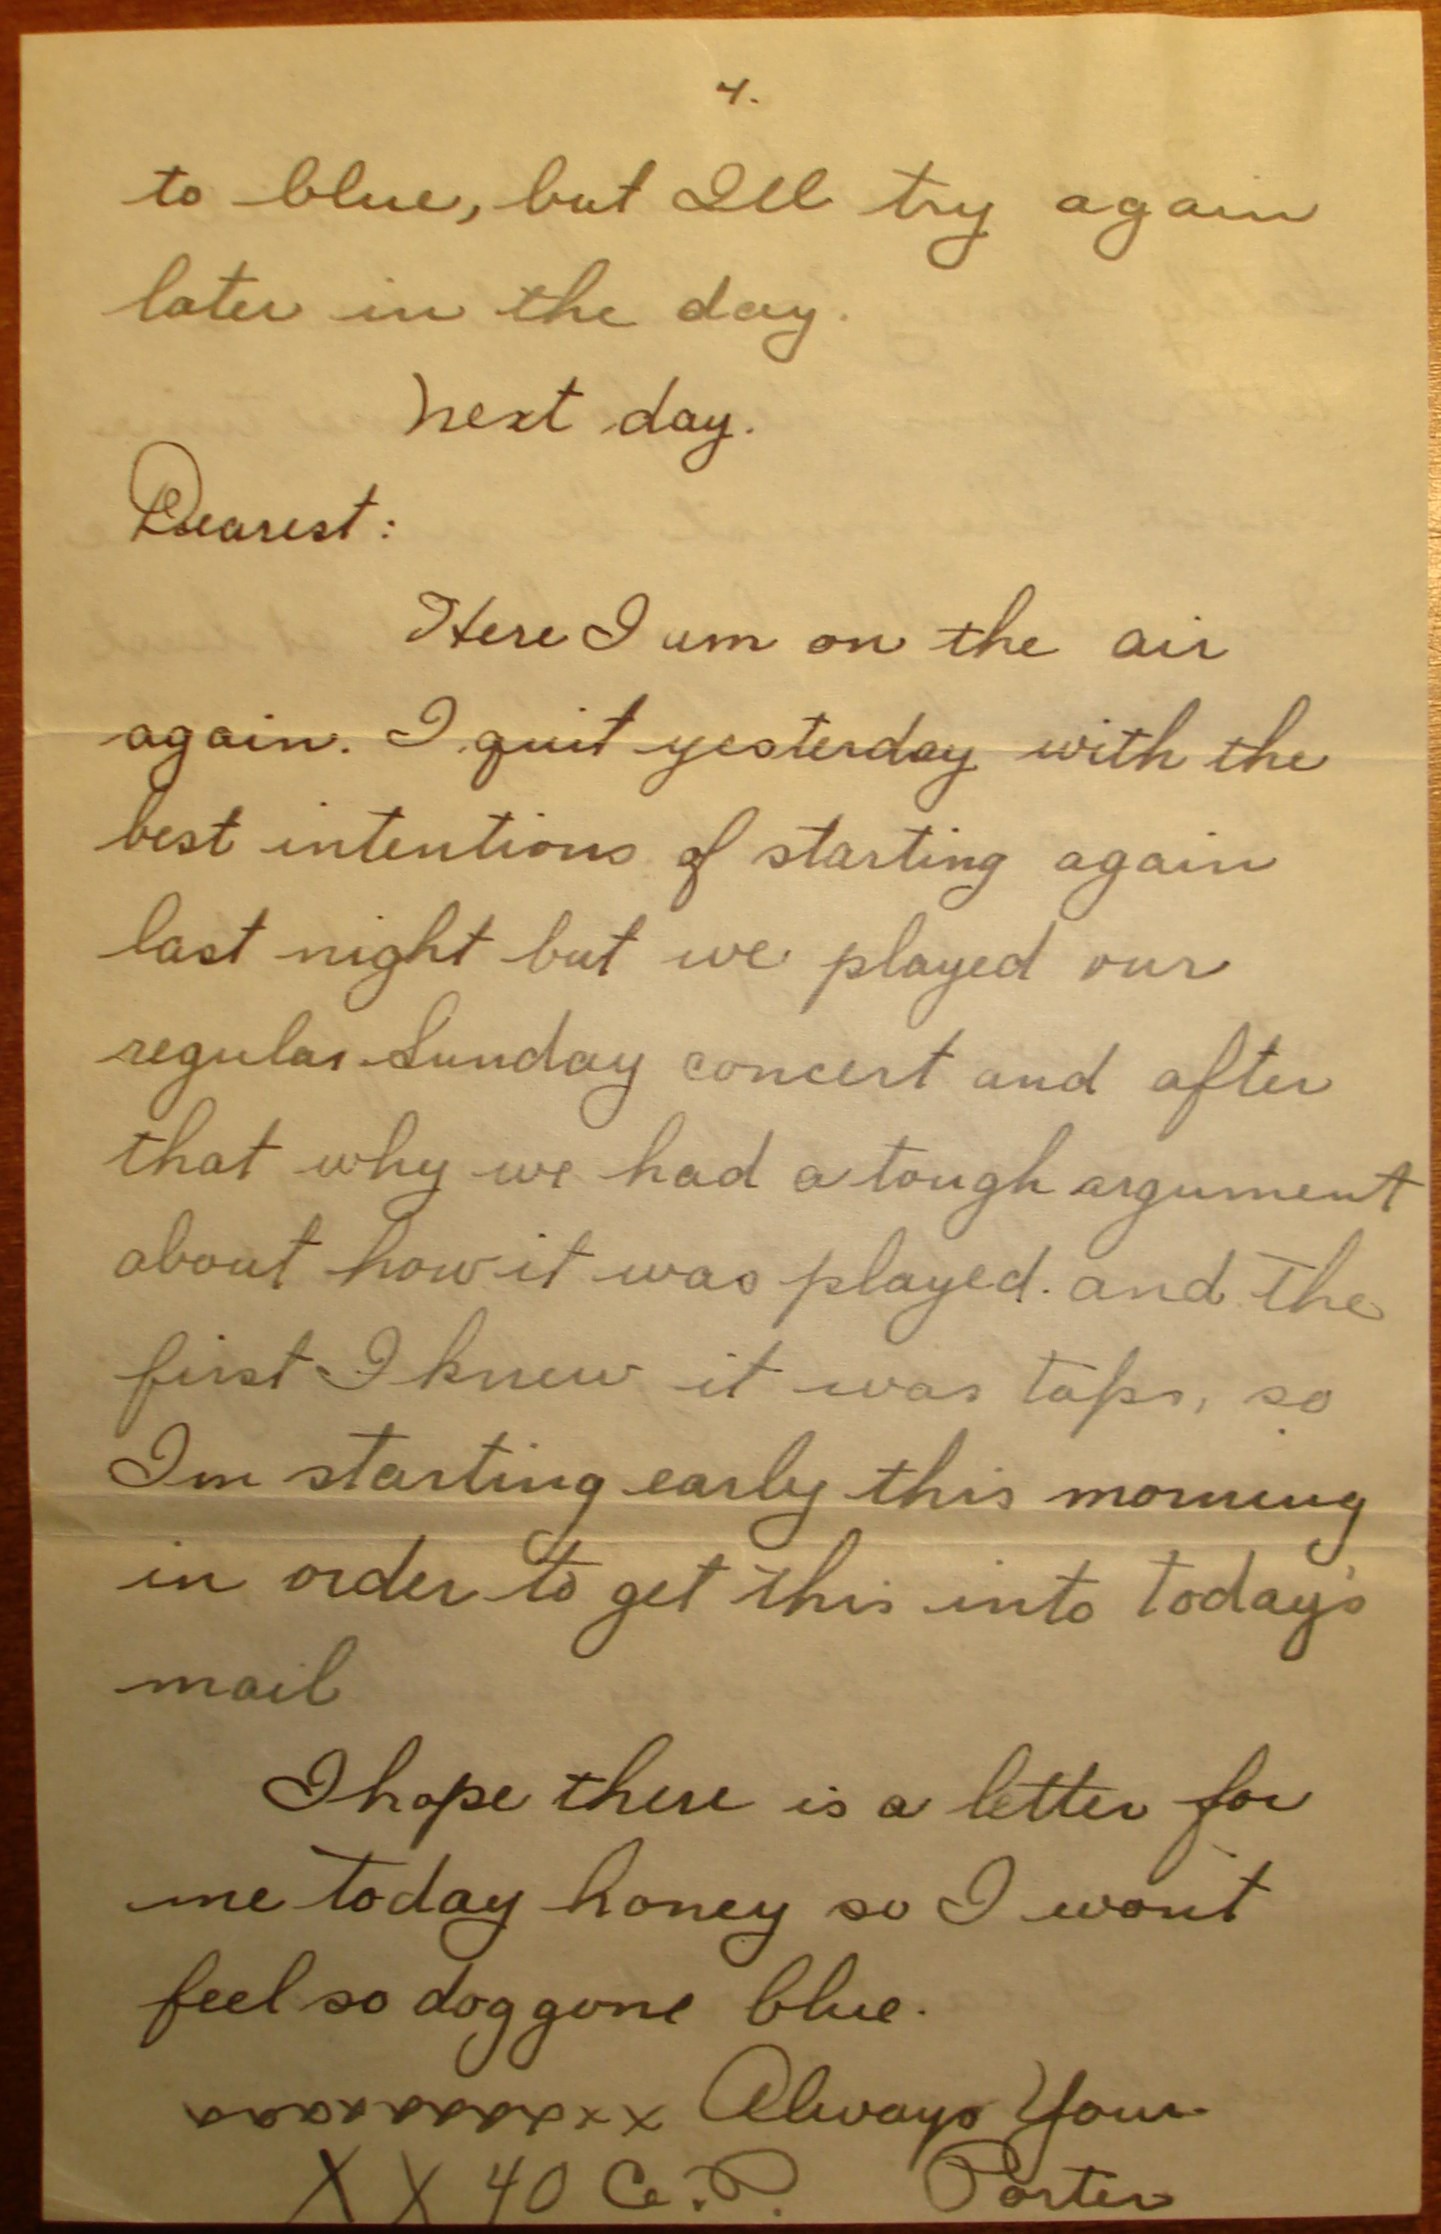 4.
to blue, but Ill try again
later in the day.
Next day.
Dearest:
Here I am on the air
again. I quit yesterday with the
best intentions of starting again
last night but we played our
regular Sunday concert and after
that why we had a tough argument
about how it was played. and the
first I knew it was taps, so
Im starting early this morning
in order to get this into today's
mail
I hope there is a letter for
me today honey so I won't
feel so doggone blue.
xxxxxxxxxxxxx Always Your
X X 40 C.P. Porter